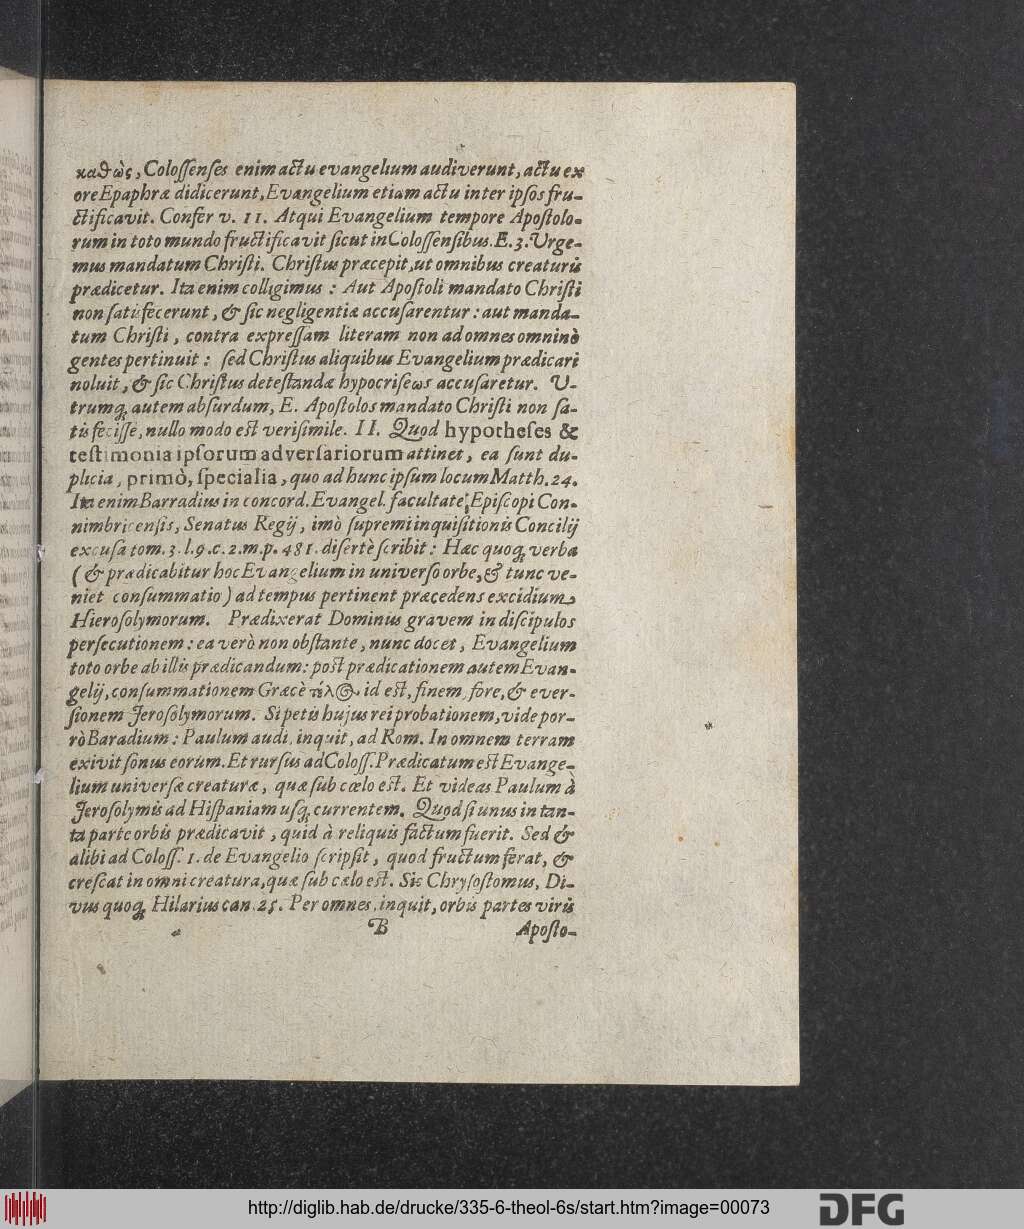 καθὼς, Coloſſenſes enim actu evangelium audiverunt, actu ex
ore Epaphræ didicerunt, Evangelium etiam actu inter ipſos fru-
ctificavit. Confer v. 11. Atqui Evangelium tempore Apoſtolo-
rum in toto mundo fructificavit ſicut in Coloſſenſibus. E. 3. Urge-
mus mandatum Chriſti. Chriſtus præcepit, ut omnibus creaturis
prædicetur. Ita enim colligimus : Aut Apoſtoli mandato Chriſti
non ſatisfecerunt, & ſic negligentiæ accuſarentur : aut manda-
tum Chriſti, contra expreſſam literam non ad omnes omninò
gentes pertinuit : ſed Chriſtus aliquibus Evangelium prædicari
noluit, & ſic Chriſtus deteſtandæ hypocriſεως accuſaretur. U-
trumq́; autem abſurdum, E. Apoſtolos mandato Chriſti non ſa-
tisfeciſſe, nullo modo eſt veriſimile. II. Quod hypotheſes &
teſtimonia ipſorum adverſariorum attinet, ea ſunt du-
plicia, primò, ſpecialia, quo ad hunc ipſum locum Matth. 24.
Ita enim Barradius in concord. Evangel. facultate Epiſcopi Con-
nimbricenſis, Senatus Regij, imò ſupremi inquiſitionis Concilij
excuſa tom. 3. l. 9. c. 2. m. p. 481. diſertè ſcribit : Hæc quoq; verba
(& prædicabitur hoc Evangelium in univerſo orbe, & tunc ve-
niet conſummatio) ad tempus pertinent præcedens excidium
Hieroſolymorum. Prædixerat Dominus gravem in diſcipulos
perſecutionem : ea verò non obſtante, nunc docet, Evangelium
toto orbe ab illis prædicandum : poſt prædicationem autem Evan-
gelij, conſummationem Græcè τέλ⊙ id eſt, finem fore, & ever-
ſionem Jeroſolymorum. Si petis hujus rei probationem, vide por-
rò Baradium : Paulum audi, inquit, ad Rom. In omnem terram
exivit ſonus eorum. Et rurſus ad Coloſſ. Prædicatum eſt Evange-
lium univerſæ creaturæ, quæ ſub cœlo eſt. Et videas Paulum à
Jeroſolymis ad Hiſpaniam uſq; currentem. Quod ſi unus in tan-
ta parte orbis prædicavit, quid à reliquis factum fuerit. Sed &
alibi ad Coloſſ. 1. de Evangelio ſcripſit, quod fructum ferat, &
creſcat in omni creatura, quæ ſub cœlo eſt. Sic Chryſoſtomus, Di-
vus quoq; Hilarius can. 25. Per omnes, inquit, orbis partes viris
B Apoſto-
http://diglib.hab.de/drucke/335-6-theol-6s/start.htm?image=00073
DFG